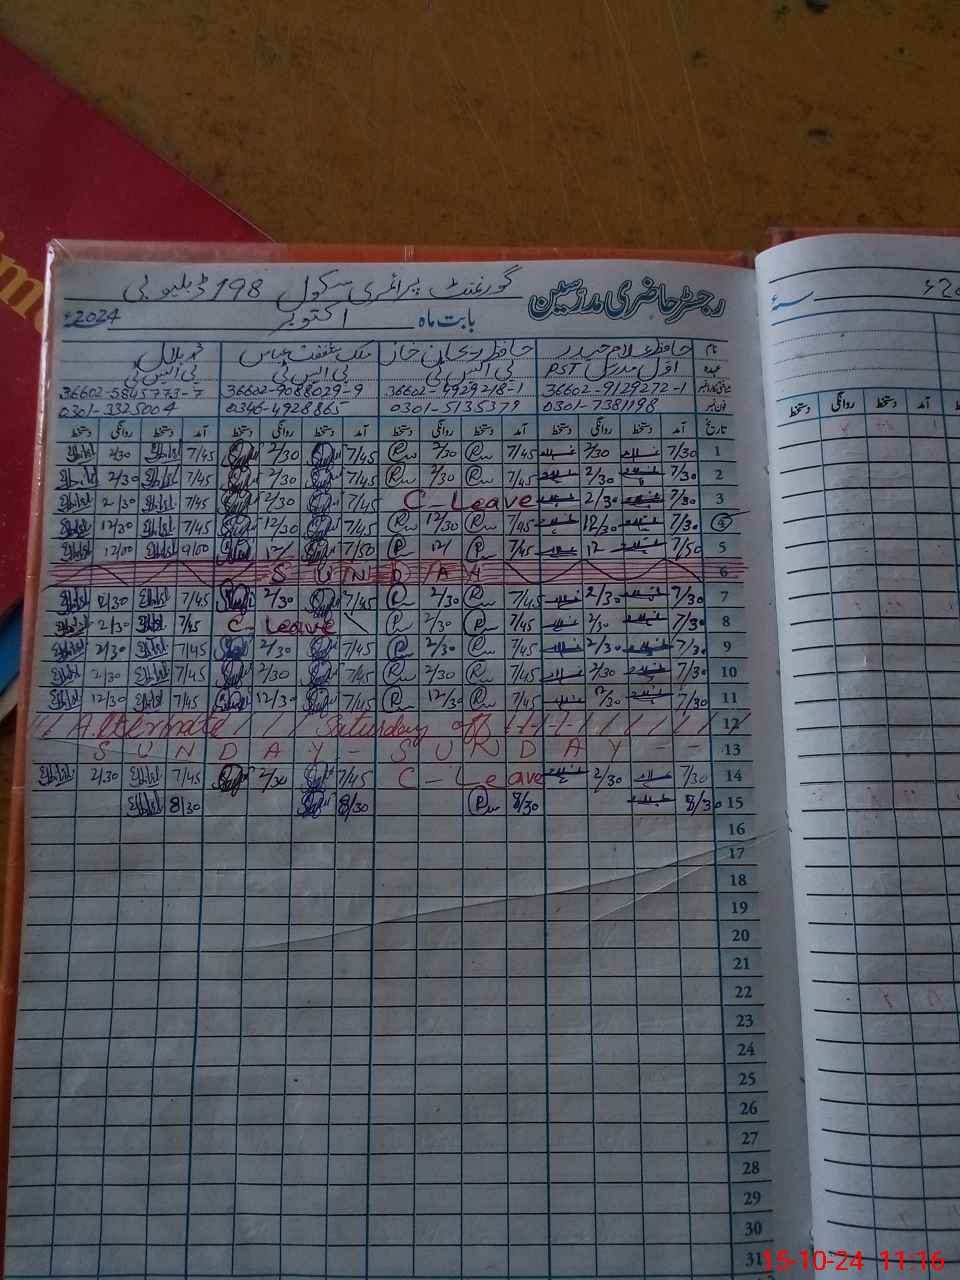 گورنمنٹ پرائمری سکول 198 ڈبلیو بی
رجسٹر حاضری مدرسین
بابت ماہ اکتوبر 2024ء
نام حافظ غلام حیدر حافظ ریحان خاز ملک شفقت عباس محمد بلال
عہدہ اول مدرس PST پی ایس ٹی پی ایس ٹی پی ایس ٹی
36602-9129272-1 36602-4929218-1 36602-9088029-9 36602-5845773-7
فون نمبر 0301-7381198 0301-5135379 0346-4928865 0301-3325004
تاریخ آمد دستخط روانگی دستخط آمد دستخط روانگی دستخط آمد دستخط روانگی دستخط آمد دستخط روانگی دستخط
1 7/30 2/30 7/45 2/30 7/45 2/30 7/45 2/30
2 7/30 2/30 7/45 2/30 7/45 2/30 7/45 2/30
3 7/30 2/30 C-Leave 7/45 2/30 7/45 2/30
4 7/30 12/30 7/45 12/30 7/45 12/30 7/45 12/30
5 7/50 12 7/45 12/ 7/50 12/ 9/00 12/00
6 SUNDAY
7 7/30 2/30 7/45 2/30 7/45 2/30 7/45 2/30
8 7/30 2/30 7/45 2/30 C Leave 7/45 2/30
9 7/30 2/30 7/45 2/30 7/45 2/30 7/45 2/30
10 7/30 2/30 7/45 2/30 7/45 2/30 7/45 2/30
11 7/30 12/30 7/45 12/30 7/45 12/30 7/45 12/30
12 Alternate Saturday off
13 SUNDAY - SUNDAY - -
14 7/30 2/30 C-Leave 7/45 2/30 7/45 2/30
15 8/30 8/30 8/30 8/30
16
17
18
19
20
21
22
23
24
25
26
27
28
29
30
31
دستخط روانگی دستخط آمد
15-10-24 11:16